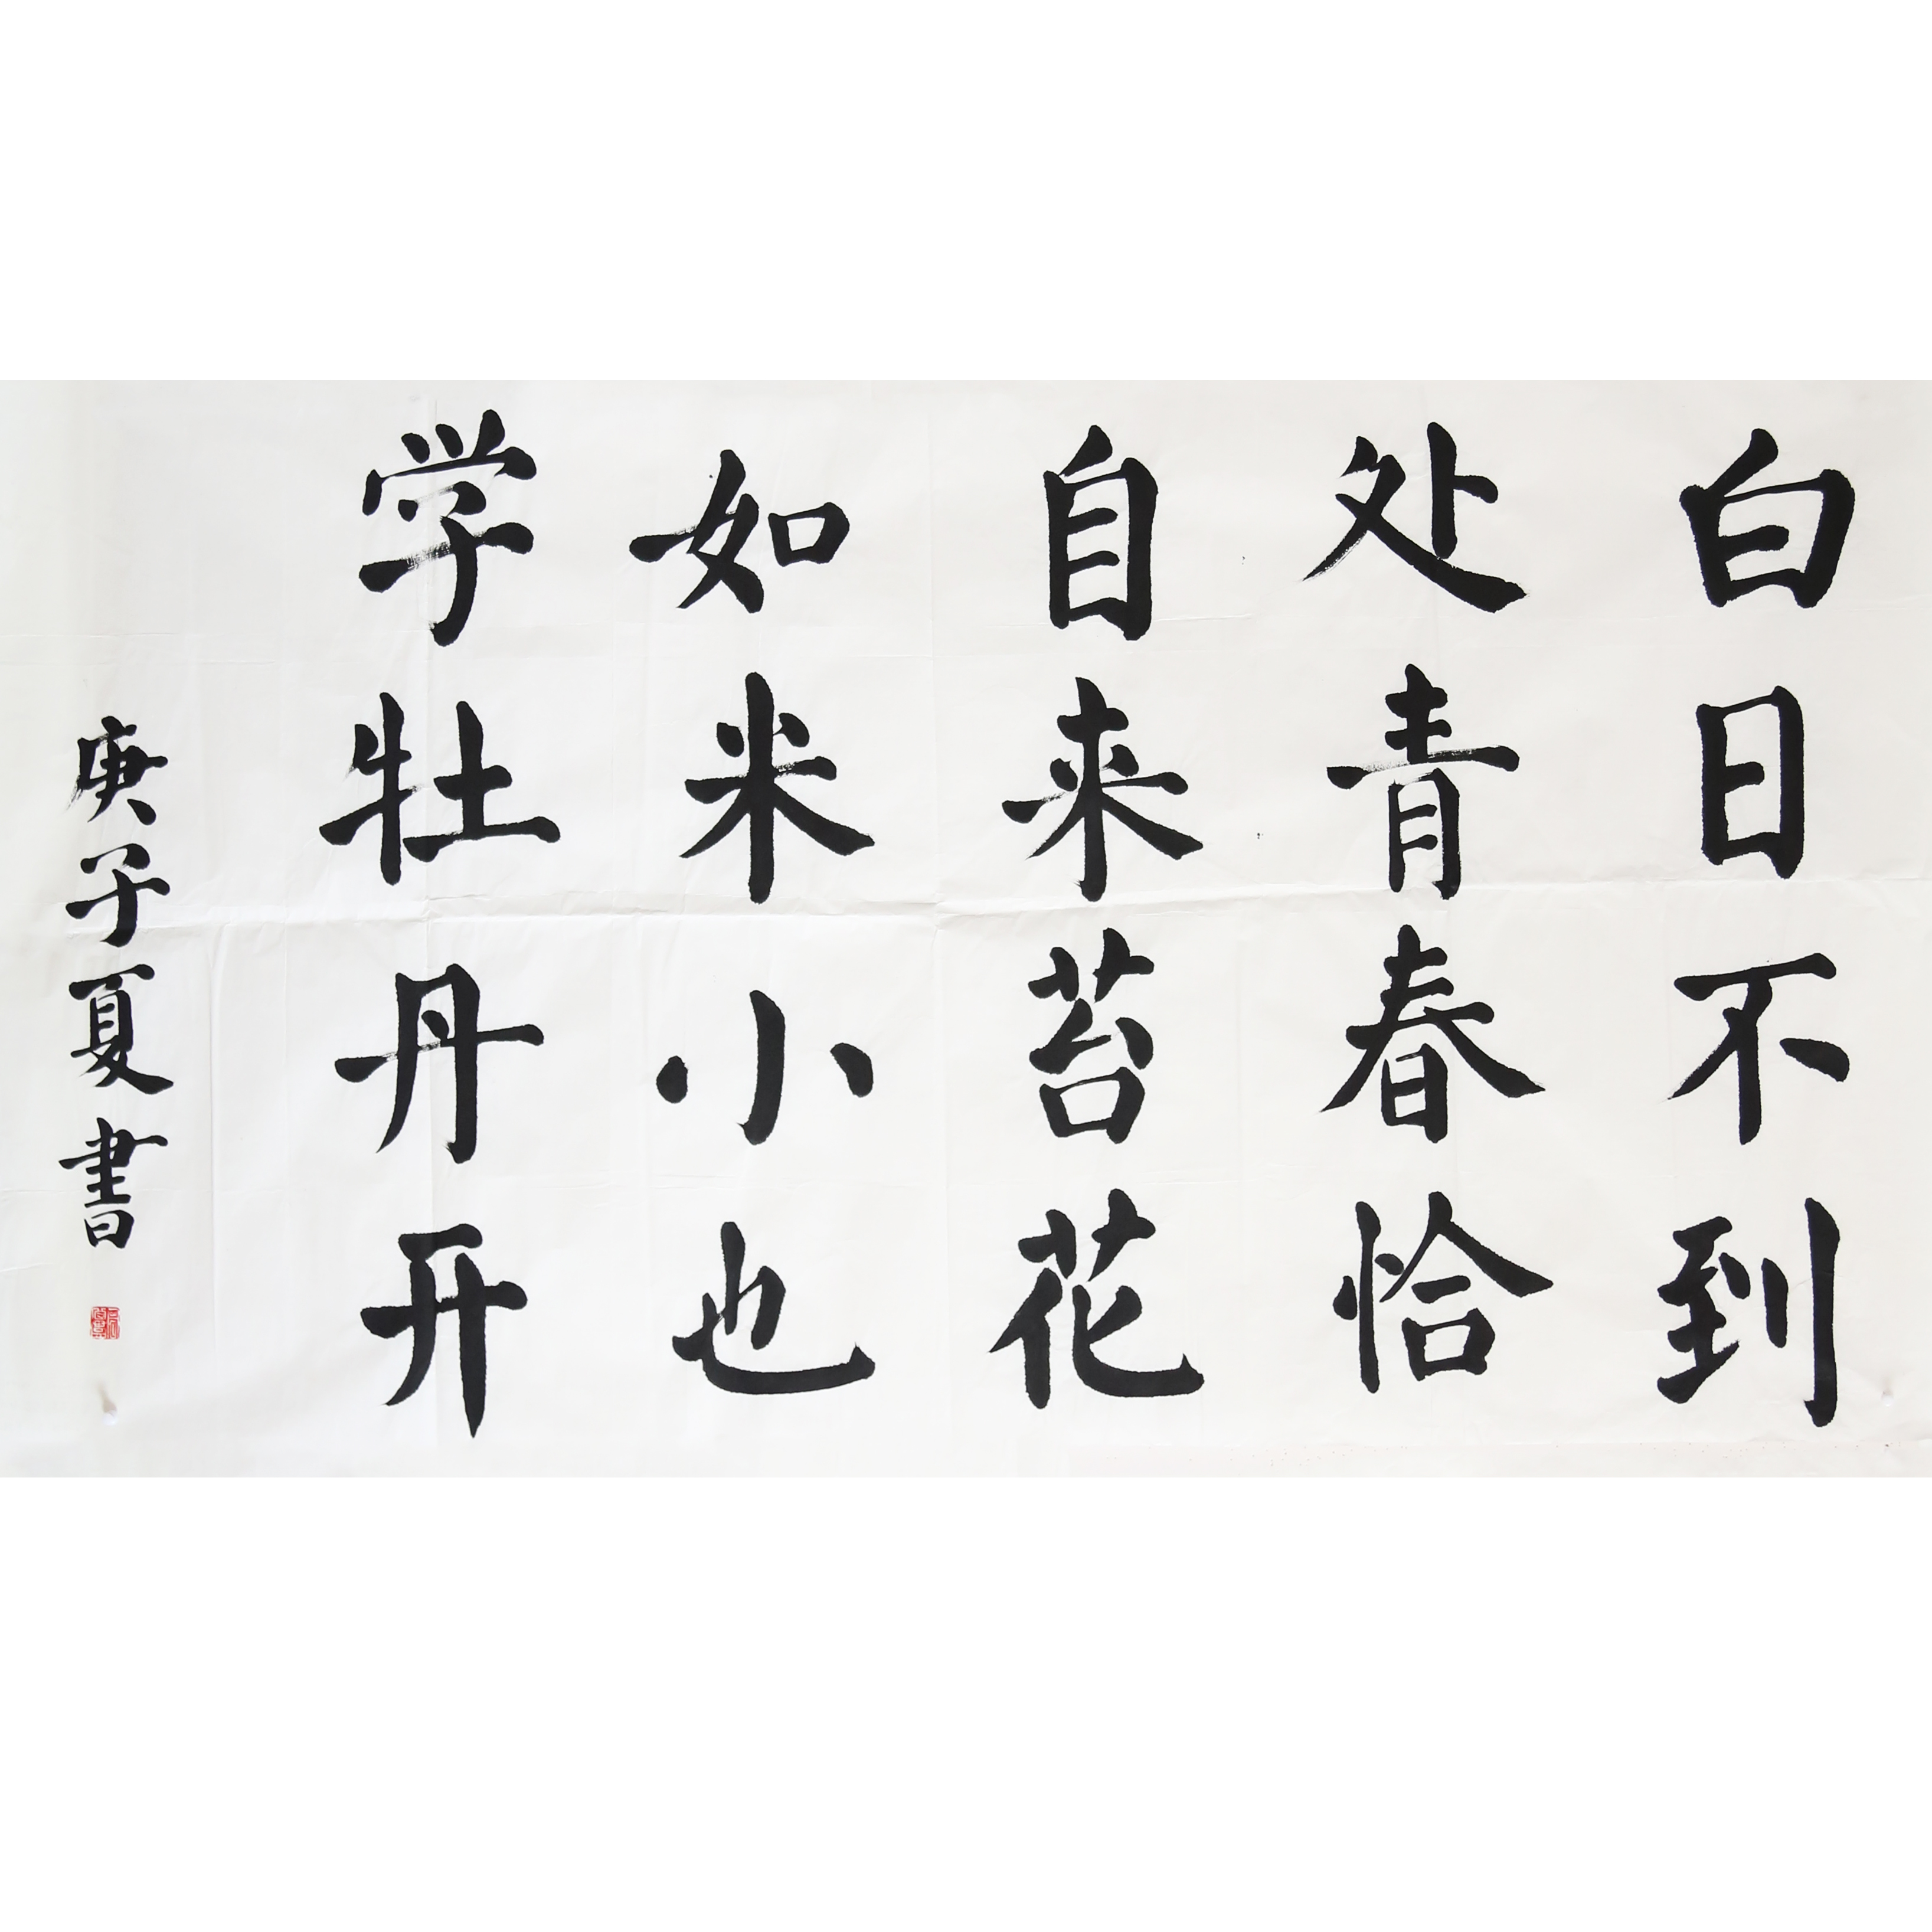 白日不到
处青春恰
自来苔花
如米小也
学牡丹开
庚子夏書